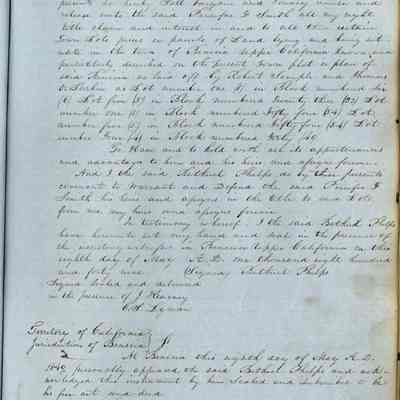 presents do hereby Sell bargain and Convey remise and
release unto the said Persifor F Smith all my right
title claim and interest in and to all those certain
Town Lots piece or parcels of Land lying and being sit-
uate in the town of Benicia Upper California known and
particularly described on the present Town plot or plan of
said Benicia as laid off by Robert Semple and Thomas
O. Larkin as Lot number one (1) in Block numbered Six
(6) Lot five (5) in Block numbered Twenty three (23) Lot
number one (1) in Block numbered fifty four (54) Lot
number five (5) in Block numbered fifty four (54) Lot
number four (4) in Block numbered forty
To Have and to hold with all its appurtenances
and advantages to him and his heirs and assigns forever.
And I the said Bethuel Phelps do by these presents
covenant to Warrant and Defend the said Persifor F
Smith his heirs and assigns in the title to said Lots
from me my heirs and assigns forever
In testimony whereof I the said Bethuel Phelps
have hereunto set my hand and seal in the presence of
the subscribing witnesses in Benicia Upper California on this
eighth day of May A.D. one thousand eight hundred
and forty nine (Signed) Bethuel Phelps
Signed Sealed and delivered
in the presence of J. Kearney
C. S. Lyman
Territory of California
Jurisdiction of Benicia
At Benicia this eighth day of May A.D.
1849 personally appeared the said Bethuel Phelps and ack-
nowledged this instrument by him Sealed and Subscribed to be
his free act and deed